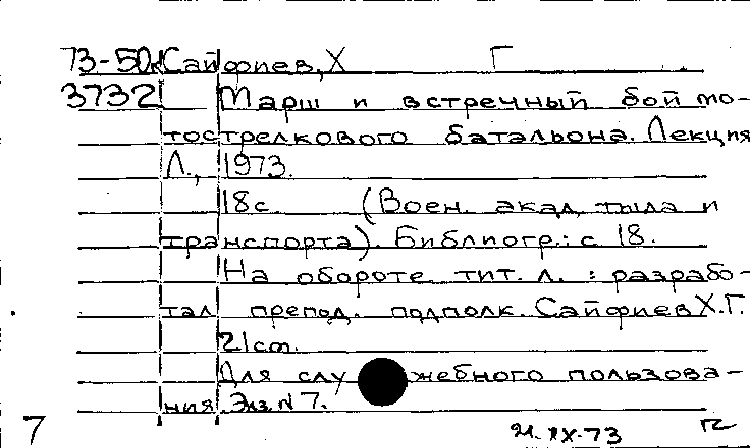 73-50к Сайфиев, Х Г
3732 Марш и встречный бой мо-
тострелкового батальона. Лекция
Л., 1973.
18с (Воен. акад. тыла и
транспорта). Библиогр.: с 18.
На обороте тит. л. : разрабо-
тал препод. подполк. Сайфиев Х.Г.
21cm.
Для служебного пользова-
ния. Экз. N 7.
7 21.IX-73